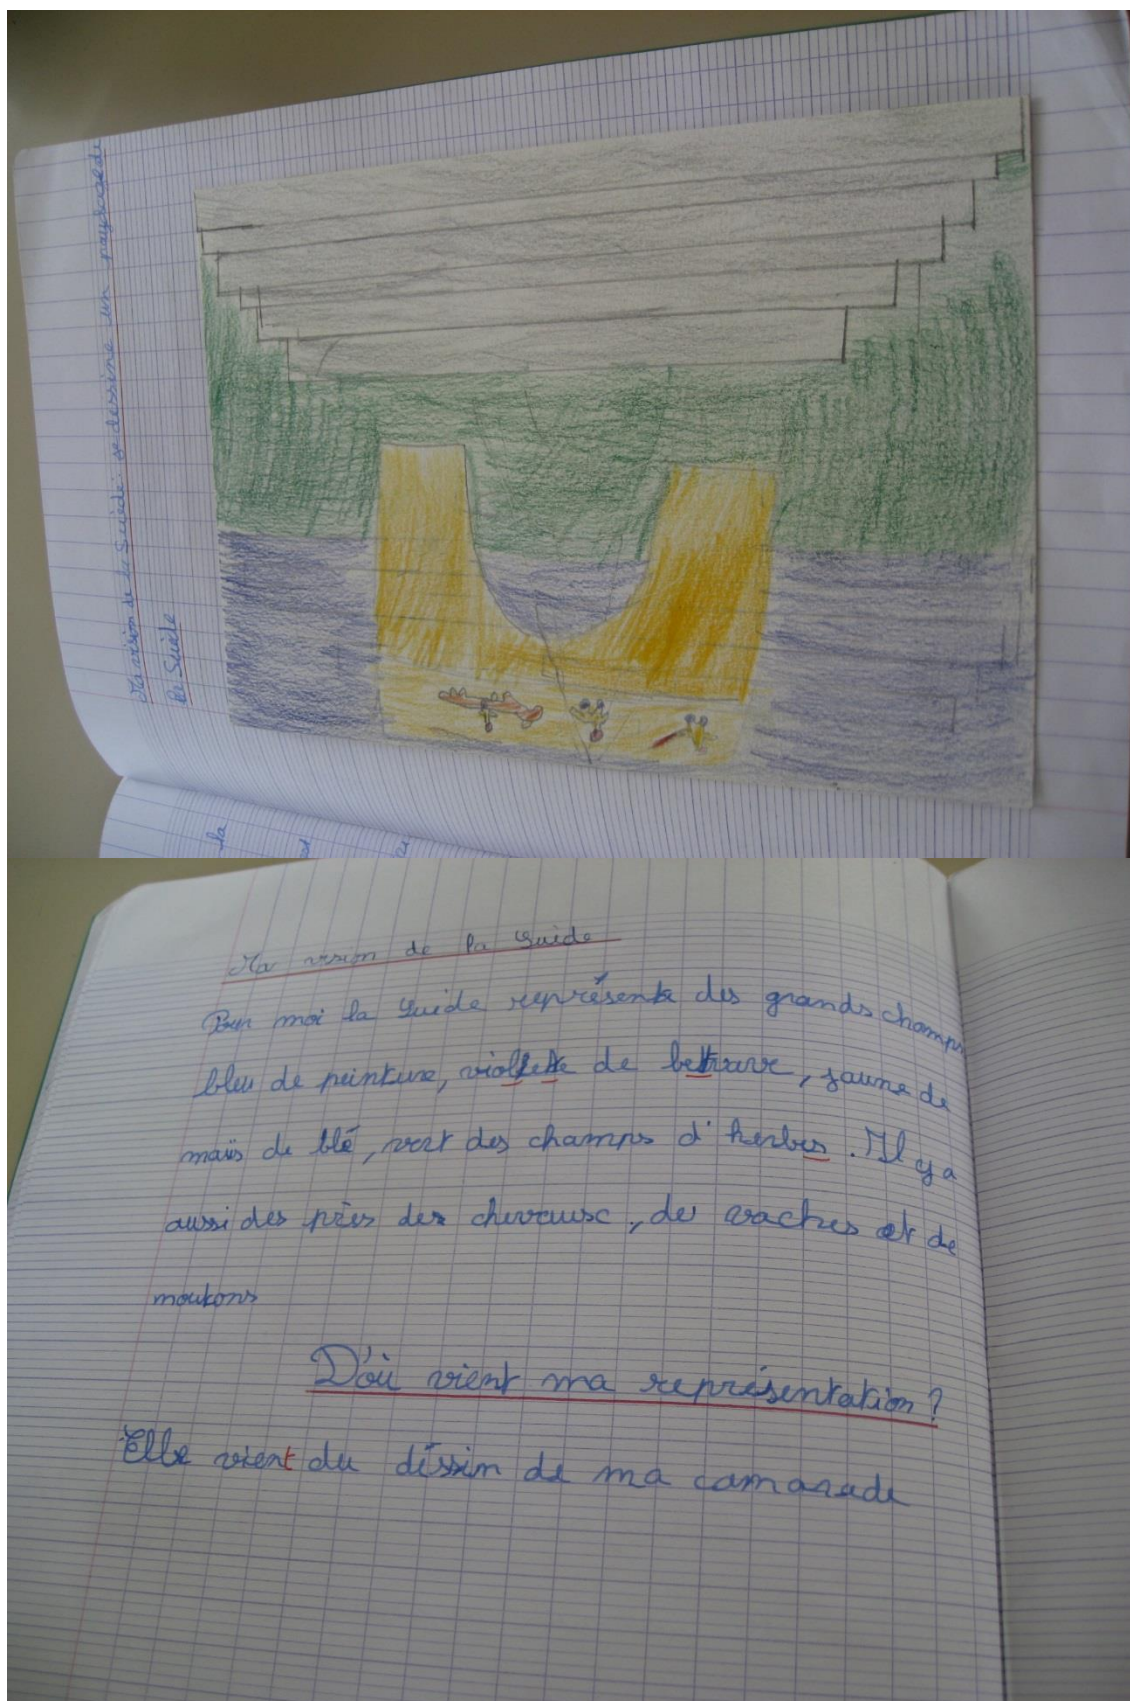 Ma vision de la Suède : je dessine un paysage de
la Suède
la
Ma vision de la Suide
Pour moi la Suide représente des grands champs
bleu de peinture, violette de betrave, jaune de
maïs de blé, vert des champs d'herbes. Il y a
aussi des près des cheveuse, des vaches et de
moutons
D'où vient ma représentation?
Elle vient du déssin de ma camarade